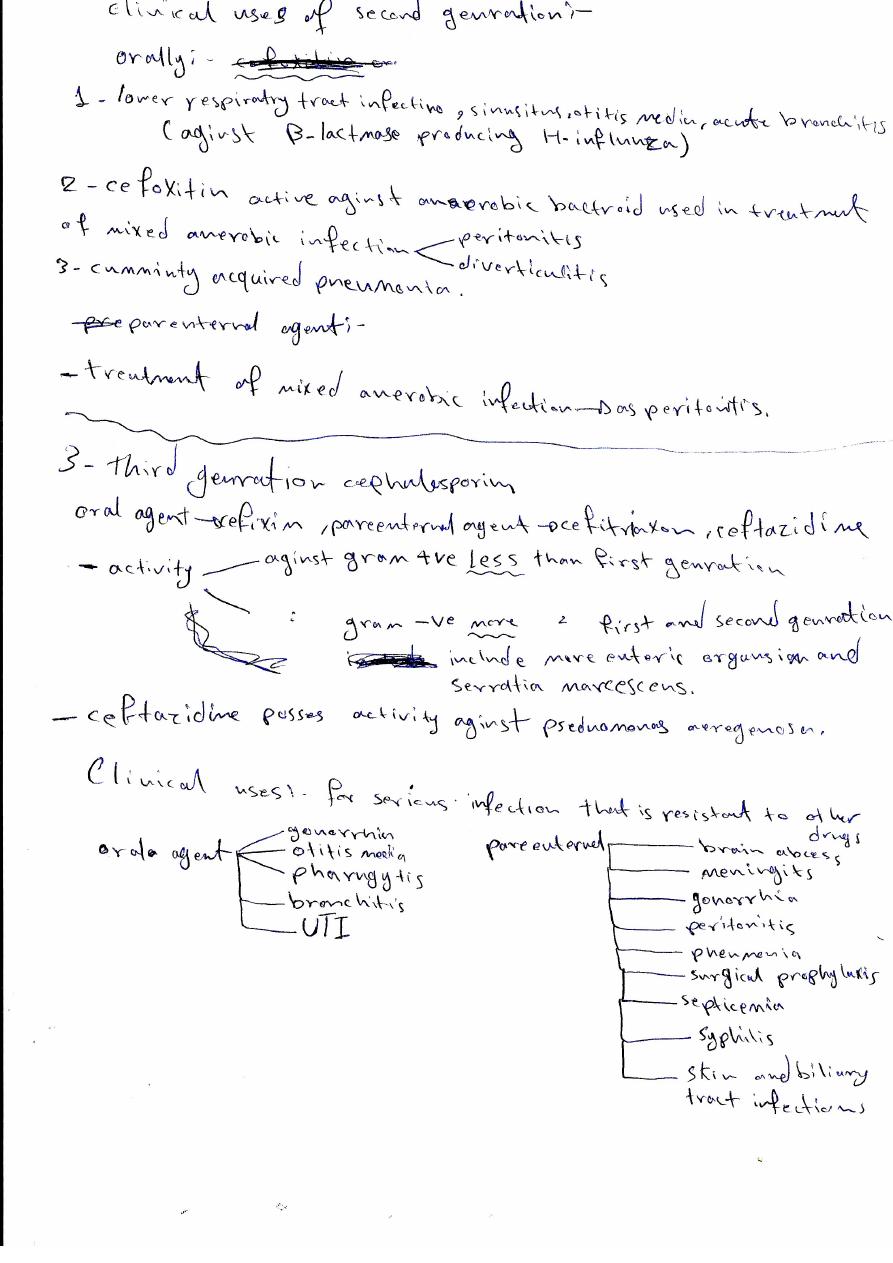 clinical uses of second genration:-
orally:-
1- lower respiratry tract infectino, sinusitus, otitis media, acute branchitis
(aginst B-lactmase producing H-influnza)
2- cefoxitin active aginst anaerobic bactroid used in treatment
of mixed anerobic infection peritonitis
diverticulitis
3- cumminty acquired pneumonia.
parenternal agent:-
- treatment of mixed anerobic infection as peritonitis.
3- third genration cephalesporin
oral agent cefixim, pareenternal agent ceftriaxon, ceftazidime
- activity aginst gram +ve less than first genration
: gram -ve more = first and second genration
include more enteric organsism and
Serratia marcescens.
- ceftazidime posses activity aginst pseduomonas aeregenosa.
Clinical uses:- for serious infection that is resistant to other
drugs
orale agent gonorrhia
otitis media
pharngytis
bronchitis
UTI
pareenternel brain abcess
meningits
gonorrhia
peritonitis
pheumonia
surgical prophylaxis
septicemia
syphilis
skin and biliary
tract infections